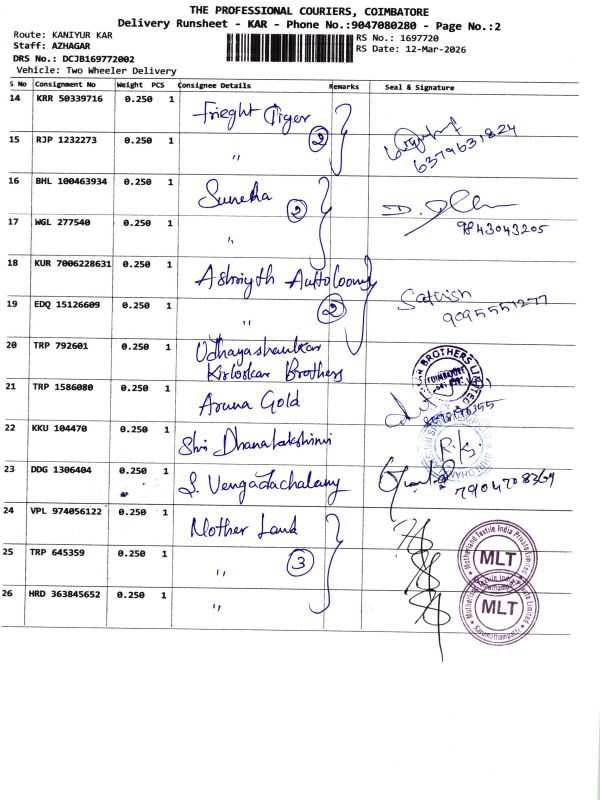 THE PROFESSIONAL COURIERS, COIMBATORE
Delivery Runsheet - KAR - Phone No.:9047080280 - Page No.:2
Route: KANIYUR KAR
RS No.: 1697720
Staff: AZHAGAR
RS Date: 12-Mar-2026
DRS No.: DCJB169772002
Vehicle: Two Wheeler Delivery
S No Consignment No Weight PCS Consignee Details Remarks Seal & Signature
14 KRR 50339716 0.250 1 Frieght Tiger
2
6379631824
15 RJP 1232273 0.250 1 "
16 BHL 100463934 0.250 1 Sunekha
2
9843043205
17 WGL 277540 0.250 1 "
18 KUR 7006228631 0.250 1 Ashriyth
Sathish
9095551277
19 EDQ 15126609 0.250 1 "
2
20 TRP 792601 0.250 1 Udhayashankar
Kirloskar Brothers
KAR BROTHERS LIMITED
COIMBATORE
21 TRP 1586080 0.250 1 Aruna Gold
22 KKU 104470 0.250 1 Shri Dhanalakshmi
R.K.S.
23 DDG 1306404 0.250 1 S. Vengadachalamy
7904708369
24 VPL 974056122 0.250 1 Mother Land
25 TRP 645359 0.250 1 "
3
26 HRD 363845652 0.250 1 "
Motherland Textile India Private Limited
MLT
Motherland Textile India Private Limited
MLT
Karumathampatti